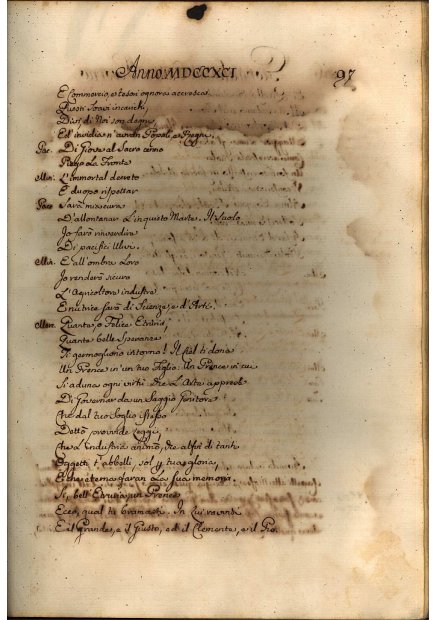 Anno MDCCXCI 97
E Commercio, e tesori ognora accresca
Questi soavi incarichi,
Divi di Noi son degni
Ed invidia n'avran Popoli, e Regni.
Pac. Di Giove al Sacro cenno
Piego la Fronte
Min. L'immortal decreto
È duopo rispettar
Pace Sarà mia cura
D'allontanar L'inquieto Marte. Il Suolo
Io farò rinverdire
Di pacifici Ulivi.
Min. E all'ombra Loro
Io renderò sicuro
L'Agricoltore industre
E nutrice sarò di Scienze, e d'Arti.
Mer. Quante, o Felice Etruria,
Quante belle Speranze
Ti germogliano intorno! Il Ciel ti dona
Un Prence in un tuo Figlio: Un Prence in cui
Si aduna ogni virtù: Che L'Arte apprese
Di Governar da un Saggio Genitore
Che dal tuo Soglio istesso
Dettò provvide Leggi,
Che L'industria animò, che alfin di tanti
Oggetti t'abbellì, sol per tua gloria,
E che eterna faran La sua memoria.
Sì, bell'Etruria, un Prence
Ecco, qual tu bramasti. In Lui
E il Grande, e il Giusto, ed il Clemente, e il Pio.